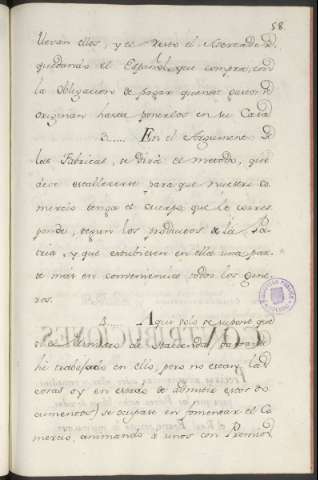 58.
llevan ellos, y el resto el Mercader
quedando el Español, que compra, con
la obligacion de pagar quantos gastos se
originan hasta ponerlos en su Casa
3.... En el Argumento de
las Fabricas, se dirá el metodo, que
deve establecerse para que nuestro co
mercio tenga el cuerpo que le corres
ponde, segun los productos de la Pa
tria, y que
en ella una par
te mas en conveniencia todos los gene
ros.
Aqui solo se supone que
el Ministro de Hacienda
he trabajado en ello, pero no estan las
cosas oy en estado de admitir estos do
cumentos) se ocupase en fomentar el Co
mercio, animando a unos con Premios